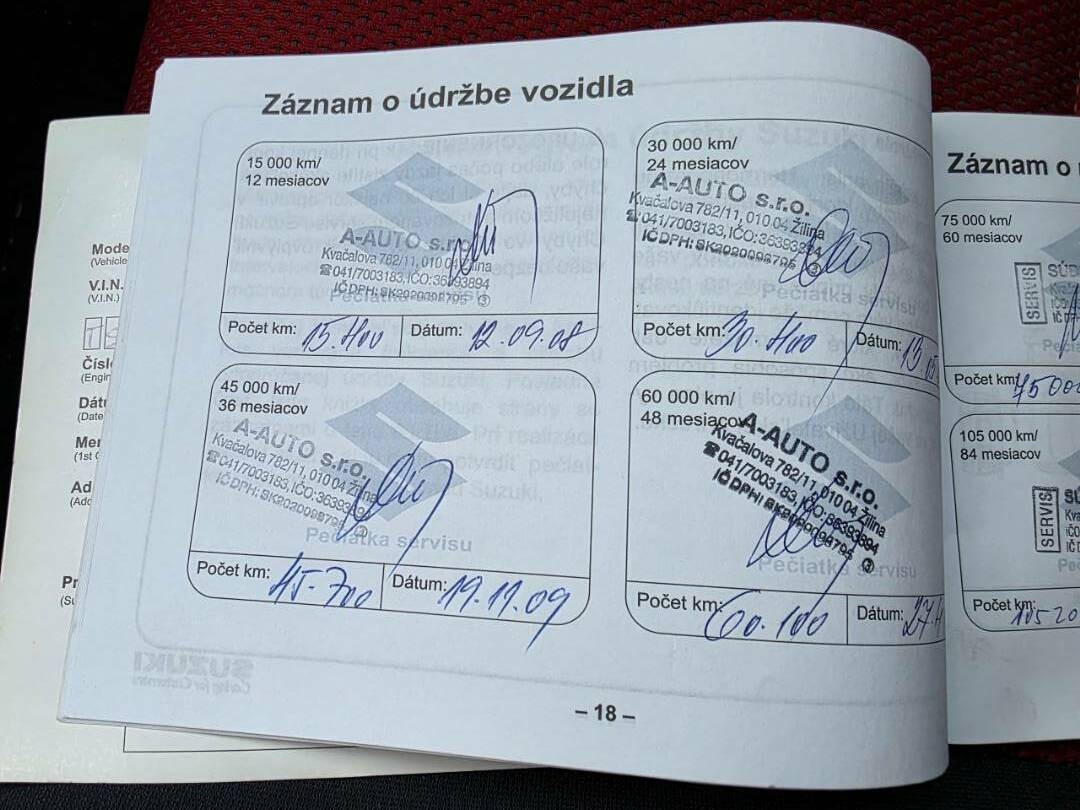 Záznam o údržbe vozidla
15 000 km/
12 mesiacov
A-AUTO s.r.o.
Kvačalova 782/11, 010 04 Žilina
☎041/7003183, IČO:36393894
IČ DPH: SK2020098795 ③
Pečiatka servisu
Počet km: 15.400
Dátum: 12.09.08
30 000 km/
24 mesiacov
A-AUTO s.r.o.
Kvačalova 782/11, 010 04 Žilina
☎041/7003183, IČO:36393894
IČ DPH: SK2020098795 ③
Pečiatka servisu
Počet km: 30.400
Dátum:
45 000 km/
36 mesiacov
A-AUTO s.r.o.
Kvačalova 782/11, 010 04 Žilina
☎041/7003183, IČO:36393894
IČ DPH: SK2020098795
Pečiatka servisu
Počet km: 45.700
Dátum: 19.11.09
60 000 km/
48 mesiacov
A-AUTO s.r.o.
Kvačalova 782/11, 010 04 Žilina
☎041/7003183, IČO:36393894
IČ DPH: SK2020098795
Pečiatka servisu
Počet km: 60.100
Dátum: 27.4
– 18 –
Záznam o
75 000 km/
60 mesiacov
SERVIS
Počet km: 75000
105 000 km/
84 mesiacov
SERVIS
Počet km:
Mode
(Vehicle
V.I.N.
(V.I.N.)
Čísl
(Engin
Dát
(Date
Mer
(1st
Ad
(Add
Pr
(Su